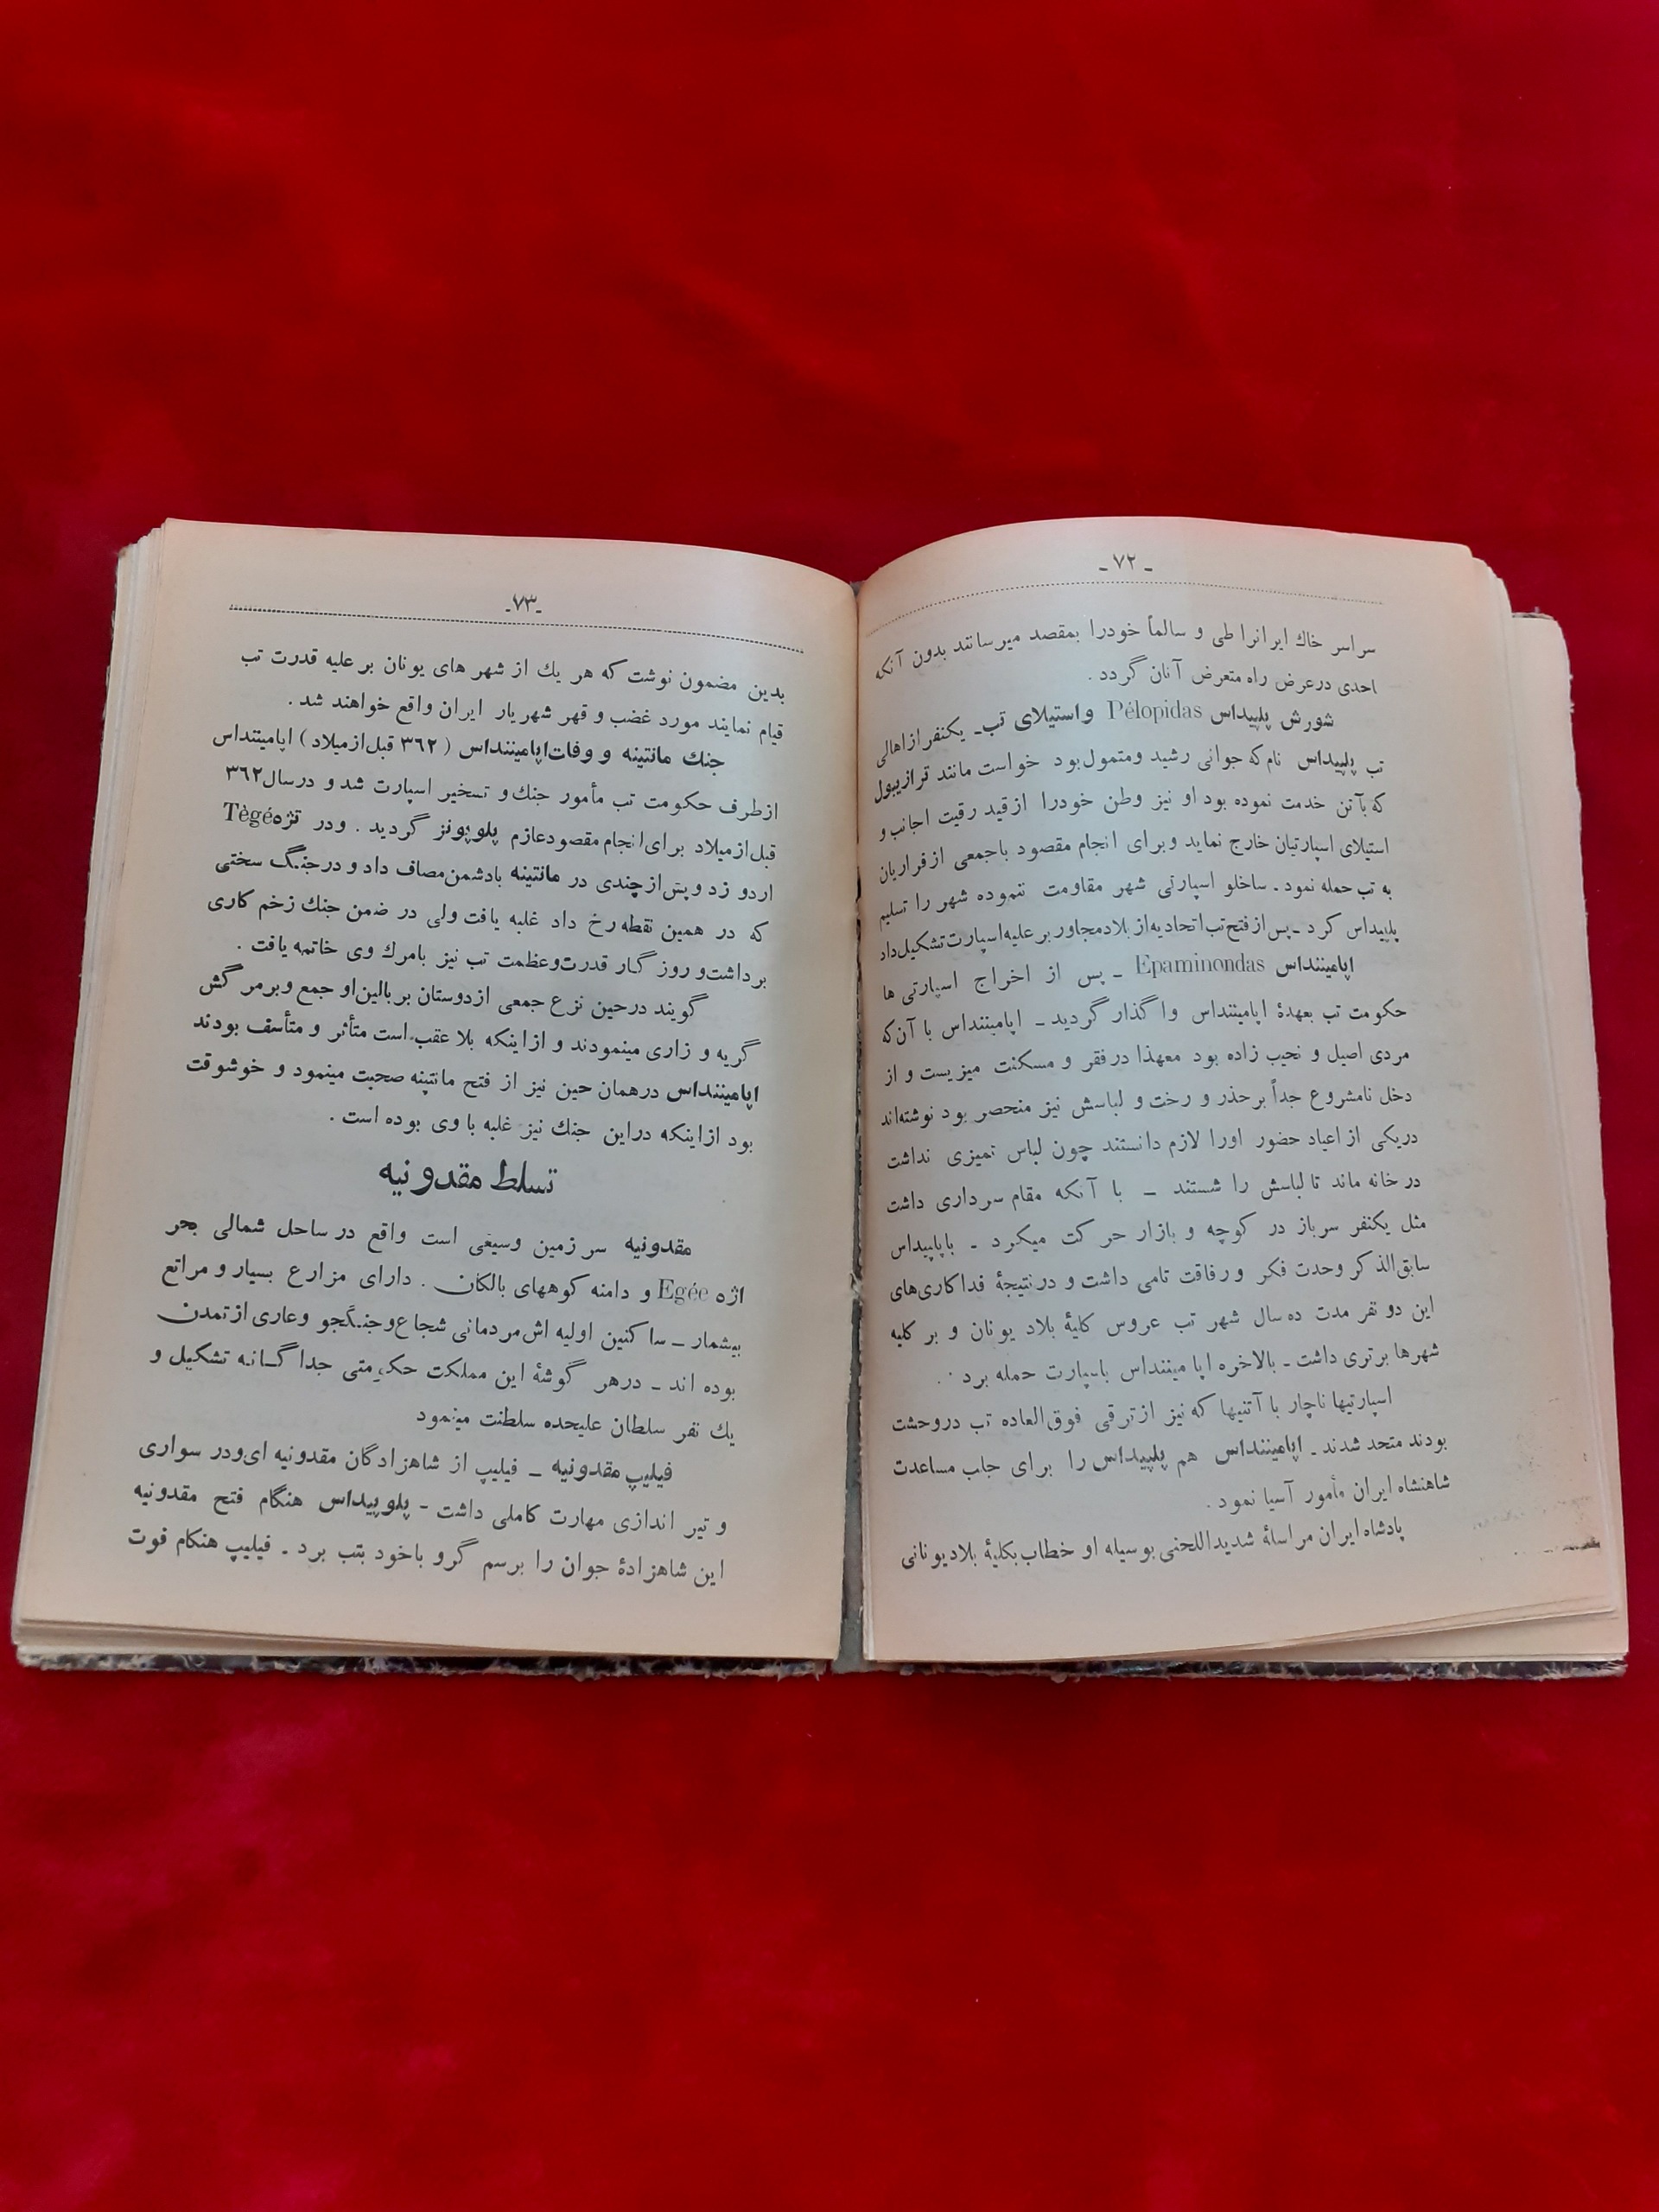 ـ ۷۲ ـ
سراسر خاك ایرانرا طی و سالماً خودرا بمقصد میرسانند بدون آنکه
احدی درعرض راه متعرض آنان گردد .
شورش پلپیداس Pélopidas واستیلای تب ـ یکنفر ازاهالی
تب پلپیداس نام که جوانی رشید ومتمول بود خواست مانند ترازیبول
که بآتن خدمت نموده بود او نیز وطن خودرا ازقید رقیت اجانب و
استیلای اسپارتیان خارج نماید وبرای انجام مقصود باجمعی ازفراریان
به تب حمله نمود ـ ساخلو اسپارتی شهر مقاومت ننموده شهر را تسلیم
پلپیداس کرد ـ پس ازفتح تب اتحادیه از بلاد مجاور بر علیه اسپارت تشکیل داد
اپامینداس Epaminondas ـ پس از اخراج اسپارتی ها
حکومت تب بعهدهٔ اپامیننداس واگذار گردید ـ اپامیننداس با آن که
مردی اصیل و نجیب زاده بود معهذا درفقر و مسکنت میزیست و از
دخل نامشروع جداً برحذر و رخت و لباسش نیز منحصر بود نوشته‌اند
دریکی از اعیاد حضور اورا لازم دانستند چون لباس تمیزی نداشت
در خانه ماند تا لباسش را شستند ـ با آنکه مقام سرداری داشت
مثل یکنفر سرباز در کوچه و بازار حرکت میکرد ـ باپلپیداس
سابق‌الذکر وحدت فکر ورفاقت تامی داشت و درنتیجهٔ فداکاری‌های
این دو نفر مدت ده سال شهر تب عروس کلیهٔ بلاد یونان و بر کلیه
شهرها برتری داشت ـ بالاخره اپامیننداس باسپارت حمله برد .
اسپارتیها ناچار با آتنیها که نیز ازترقی فوق‌العاده تب دروحشت
بودند متحد شدند ـ اپامیننداس هم پلپیداس را برای جلب مساعدت
شاهنشاه ایران مأمور آسیا نمود .
پادشاه ایران مراسلهٔ شدیداللحنی بوسیله او خطاب بکلیهٔ بلادیونانی
ـ۷۳ـ
بدین مضمون نوشت که هر یك از شهر های یونان بر علیه قدرت تب
قیام نمایند مورد غضب و قهر شهریار ایران واقع خواهند شد .
جنك مانتینه و وفات اپامیننداس ( ۳٦۲ قبل ازمیلاد ) اپامیننداس
ازطرف حکومت تب مأمور جنك و تسخیر اسپارت شد و درسال ۳٦۲
قبل ازمیلاد برای انجام مقصود عازم پلوپونز گردید . ودر تژه Tègé
اردو زد و پس از چندی در مانتینه بادشمن مصاف داد و درجنگ سختی
که در همین نقطه رخ داد غلبه یافت ولی در ضمن جنك زخم کاری
برداشت و روز گار قدرت وعظمت تب نیز بامرك وی خاتمه یافت .
گویند درحین نزع جمعی ازدوستان بربالین او جمع وبرمر گش
گریه و زاری مینمودند و ازاینکه بلا عقب است متأثر و متأسف بودند
اپامیننداس درهمان حین نیز از فتح مانتینه صحبت مینمود و خوشوقت
بود ازاینکه دراین جنك نیز غلبه با وی بوده است .
تسلط مقدونیه
مقدونیه سر زمین وسیعی است واقع در ساحل شمالی بحر
اژه Egée و دامنه کوههای بالکان . دارای مزارع بسیار و مراتع
بیشمار ـ ساکنین اولیه اش مردمانی شجاع و جنگجو وعاری ازتمدن
بوده اند ـ درهر گوشهٔ این مملکت حکومتی جدا گانه تشکیل و
یك نفر سلطان علیحده سلطنت مینمود
فیلیپ مقدونیه ـ فیلیپ از شاهزادگان مقدونیه ای ودر سواری
و تیر اندازی مهارت کاملی داشت ـ پلوپیداس هنگام فتح مقدونیه
این شاهزادهٔ جوان را برسم گرو باخود بتب برد ـ فیلیپ هنگام فوت